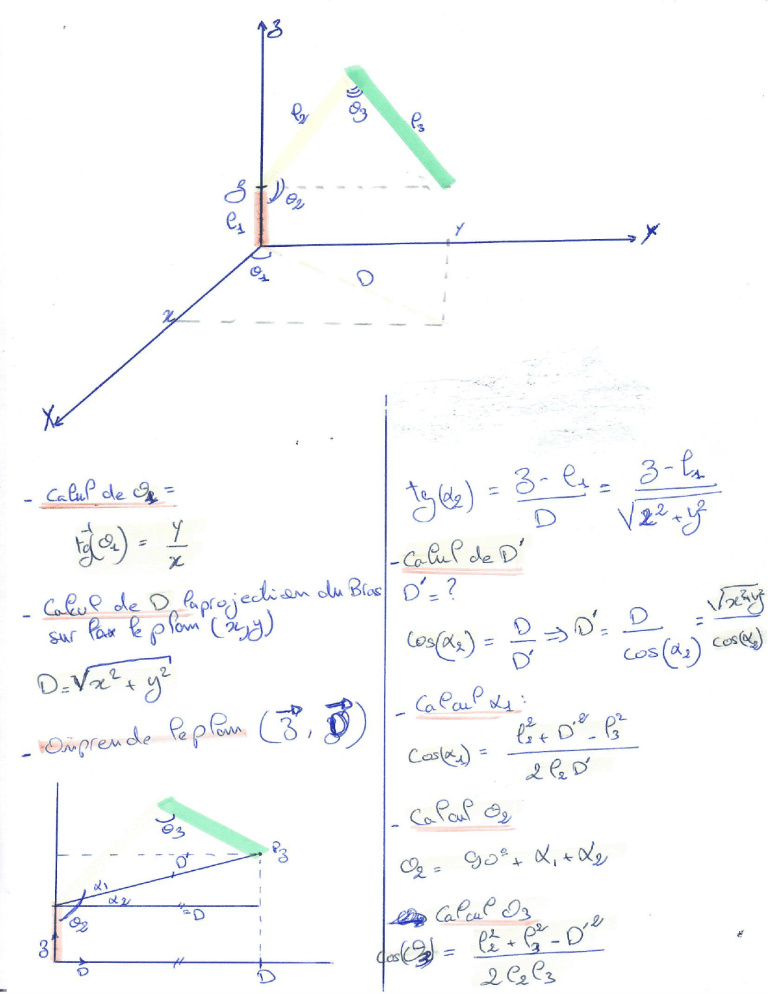 z
l₂
θ₃
l₃
z
θ₂
l₁
y
Y
θ₁
D
x
X
- Calcul de θ₁ =
tg⁻¹(θ₁) = y/x
- Calcul de D la projection du Bras
sur le plan (x,y)
D = √(x² + y²)
- On prende le plan (z⃗, D⃗)
θ₃
P₃
D'
α₁
α₂
θ₂
= D
z
D
D
tg(α₂) = (z - l₁)/D = (z - l₁)/√(x² + y²)
- Calcul de D'
D' = ?
cos(α₂) = D/D' ⇒ D' = D/cos(α₂) = √(x²+y²)/cos(α₂)
- Calcul α₁ :
cos(α₁) = (l₂² + D'² - l₃²)/(2 l₂ D')
- Calcul θ₂
θ₂ = 90° + α₁ + α₂
Calcul θ₃
cos(θ₃) = (l₂² + l₃² - D'²)/(2 l₂ l₃)